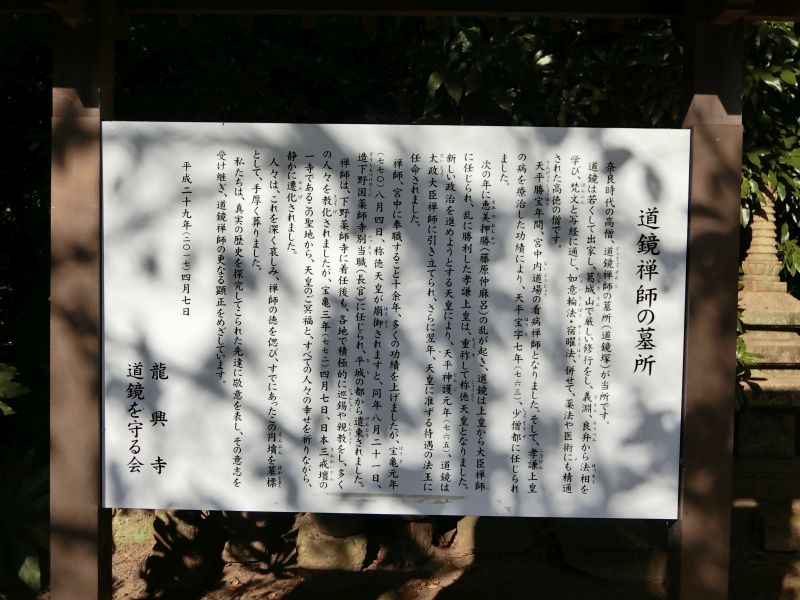 道鏡禅師の墓所
奈良時代の高僧、道鏡禅師の墓所（道鏡塚）が当所です。
道鏡は若くして出家し、葛城山で厳しい修行をし、義淵、良弁から法相を
学び、梵文と写経に通じ、如意輪法・宿曜法、併せて、薬法や医術にも精通
された高徳の僧です。
天平勝宝年間、宮中内道場の看病禅師となりました。そして、孝謙上皇
の病を療治した功績により、天平宝字七年（七六三）、少僧都に任じられ
ました。
次の年に恵美押勝（藤原仲麻呂）の乱が起き、道鏡は上皇から大臣禅師
に任じられ、乱に勝利した孝謙上皇は、重祚して称徳天皇となりました。
新しい政治を進めようとする天皇により、天平神護元年（七六五）、道鏡は
太政大臣禅師に引き立てられ、さらに翌年、天皇に準ずる待遇の法王に
任命されました。
禅師、宮中に奉職すること十余年、多くの功績を上げましたが、宝亀元年
（七七〇）八月四日、称徳天皇が崩御されますと、同年八月二十一日、
造下野国薬師寺別当職（長官）に任じられ、平城の都から遷東されました。
禅師は、下野薬師寺に着任後も、各地で積極的に巡錫や親教をし、多く
の人々を教化されましたが、宝亀三年（七七二）四月七日、日本三戒壇の
一寺であるこの聖地から、天皇のご冥福と、すべての人々の幸せを祈りながら、
静かに遷化されました。
人々は、これを深く哀しみ、禅師の徳を偲び、すでにあったこの円墳を墓標
として、手厚く葬りました。
私たちは、真実の歴史を探究してこられた先達に敬意を表し、その意志を
受け継ぎ、道鏡禅師の更なる顕正をめざしています。
平成二十九年（二〇一七）四月七日
龍興寺
道鏡を守る会